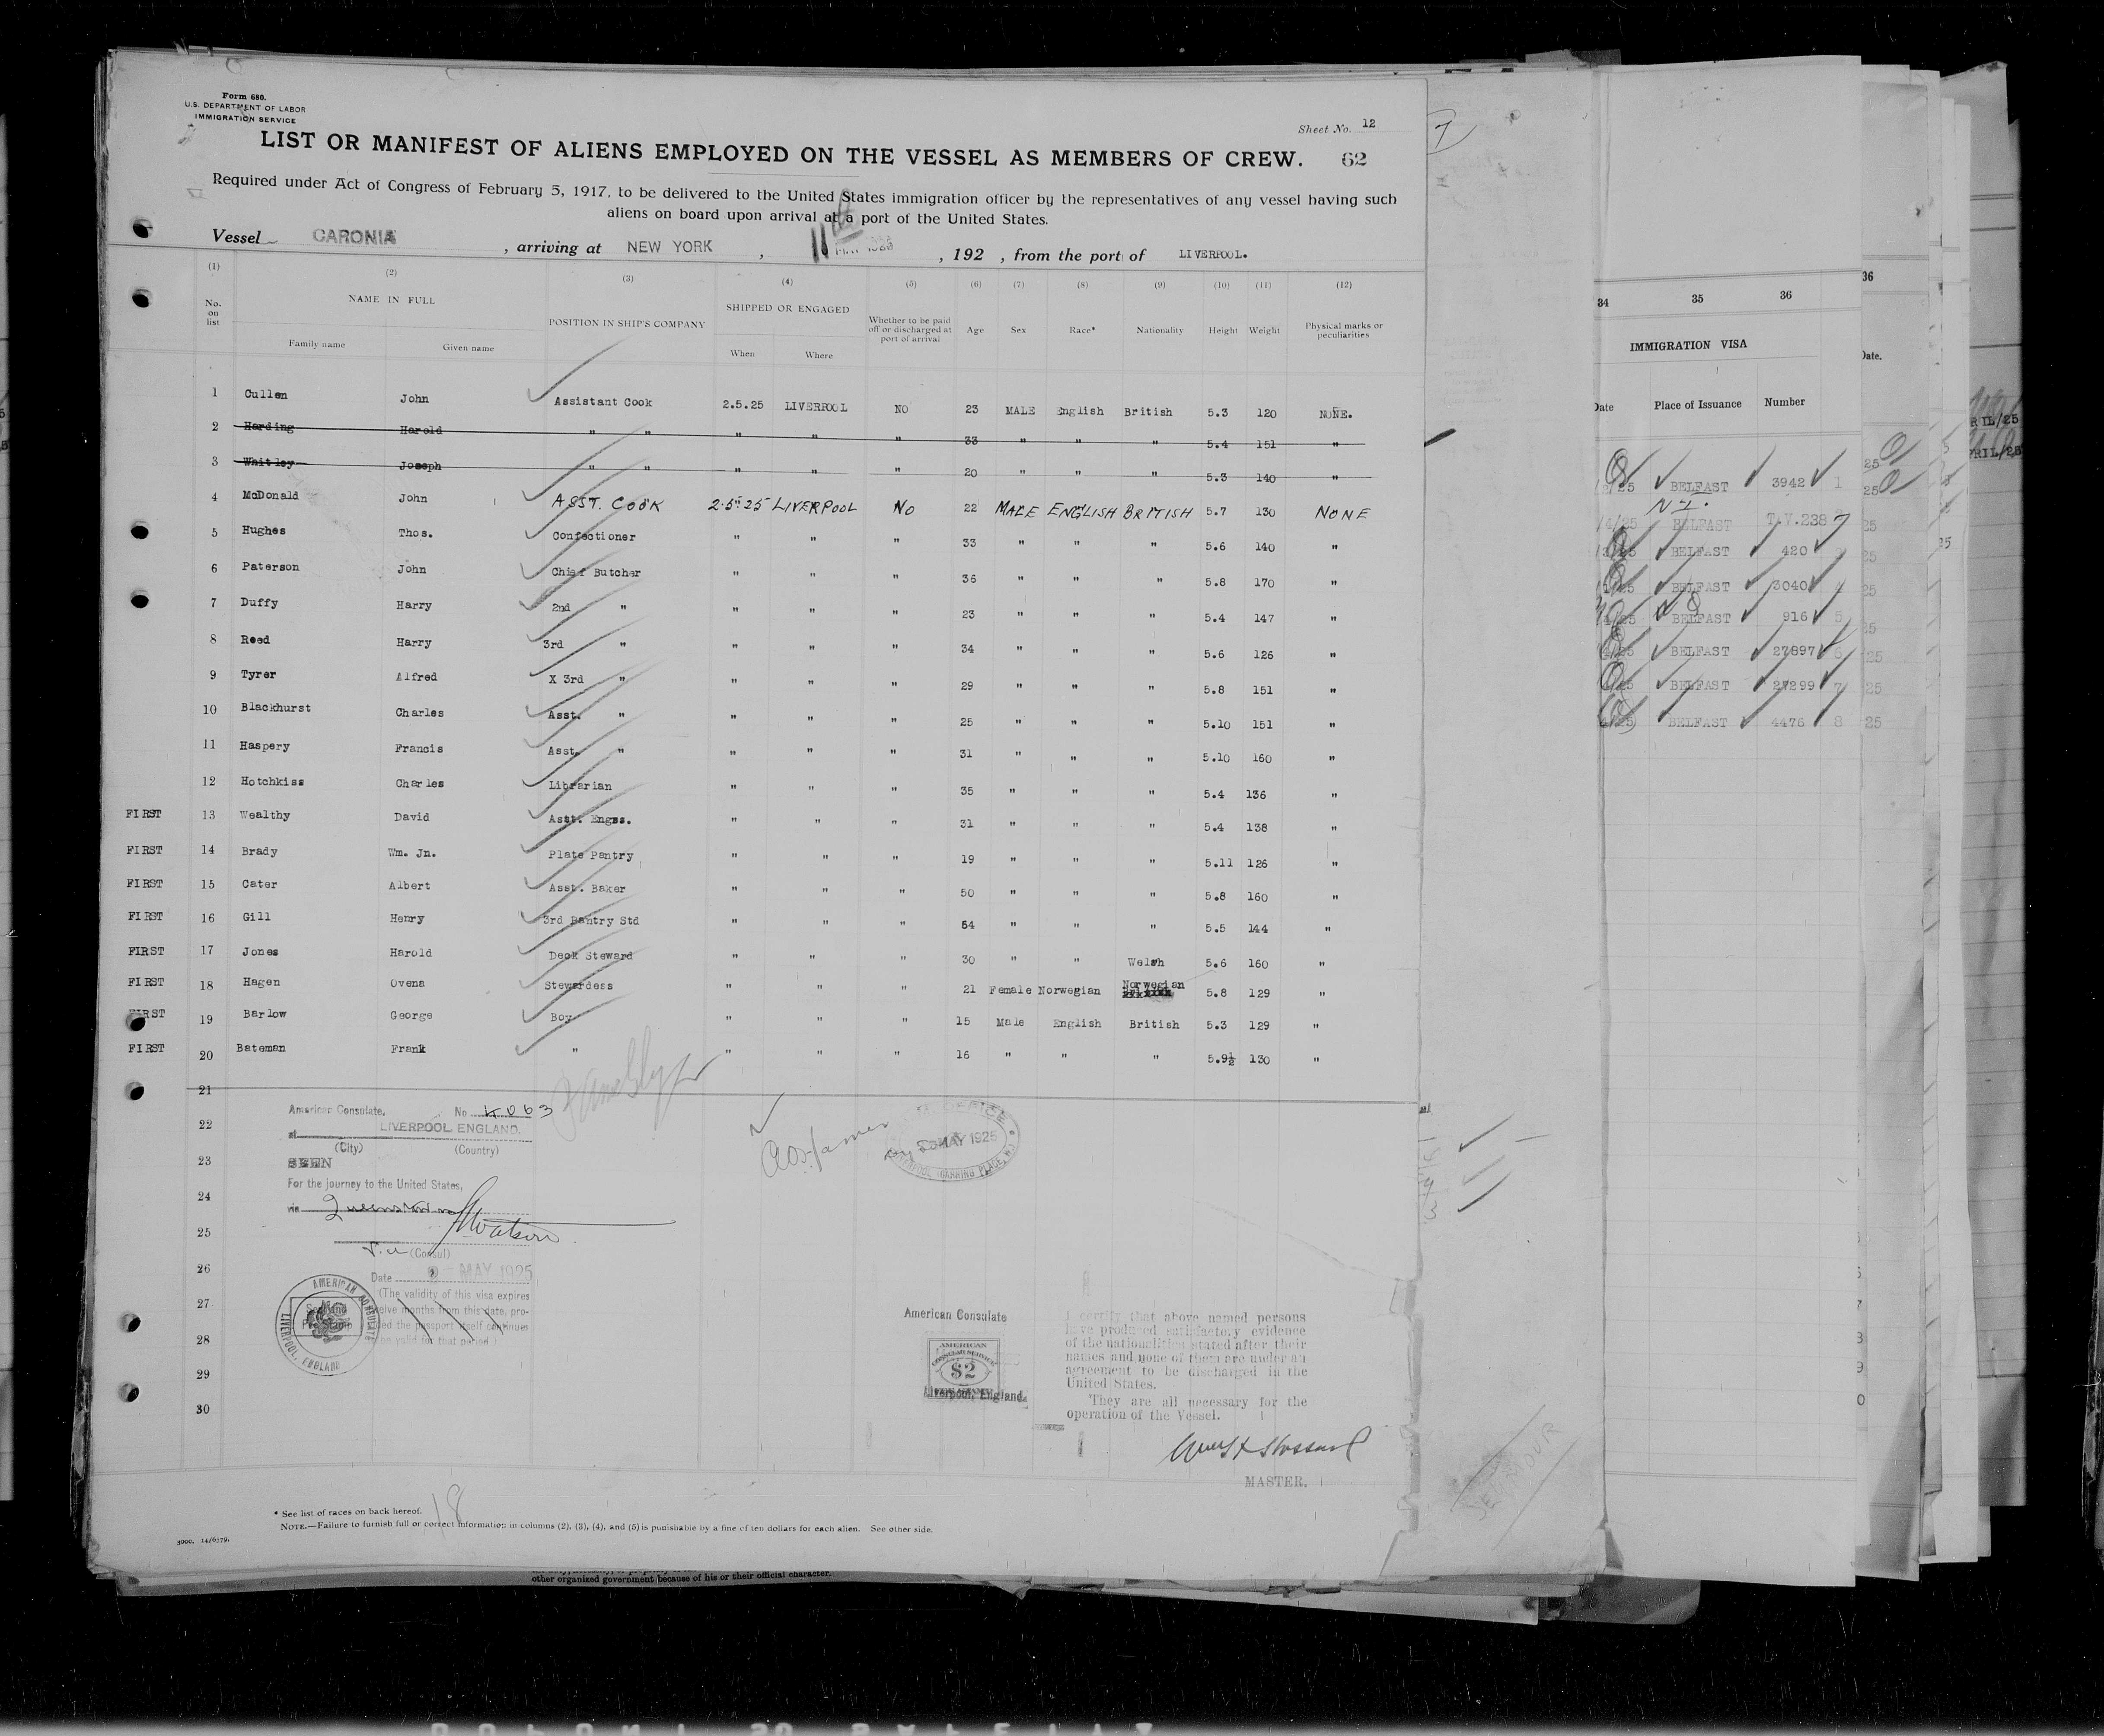 Form 680.
U.S. DEPARTMENT OF LABOR
IMMIGRATION SERVICE
Sheet No. 12
LIST OR MANIFEST OF ALIENS EMPLOYED ON THE VESSEL AS MEMBERS OF CREW. 62
Required under Act of Congress of February 5, 1917, to be delivered to the United States immigration officer by the representatives of any vessel having such
aliens on board upon arrival at a port of the United States.
Vessel CARONIA , arriving at NEW YORK , 11th , 192 , from the port of LIVERPOOL.
(1) (2) (3) (4) (5) (6) (7) (8) (9) (10) (11) (12)
No. on list NAME IN FULL POSITION IN SHIP'S COMPANY SHIPPED OR ENGAGED Whether to be paid off or discharged at port of arrival Age Sex Race* Nationality Height Weight Physical marks or peculiarities
Family name Given name When Where
1 Cullen John Assistant Cook 2.5.25 LIVERPOOL NO 23 MALE English British 5.3 120 NONE.
2 Harding Harold " " " " " 33 " " " 5.4 151 "
3 Whitley Joseph " " " " " 20 " " " 5.3 140 "
4 McDonald John ASST. COOK 2.5.25 LIVERPOOL NO 22 MALE ENGLISH BRITISH 5.7 130 NONE
5 Hughes Thos. Confectioner " " " 33 " " " 5.6 140 "
6 Paterson John Chief Butcher " " " 36 " " " 5.8 170 "
7 Duffy Harry 2nd " " " " 23 " " " 5.4 147 "
8 Reed Harry 3rd " " " " 34 " " " 5.6 126 "
9 Tyrer Alfred X 3rd " " " " 29 " " " 5.8 151 "
10 Blackhurst Charles Asst. " " " " 25 " " " 5.10 151 "
11 Haspery Francis Asst. " " " " 31 " " " 5.10 160 "
12 Hotchkiss Charles Librarian " " " 35 " " " 5.4 136 "
FIRST 13 Wealthy David Asst. Engss. " " " 31 " " " 5.4 138 "
FIRST 14 Brady Wm. Jn. Plate Pantry " " " 19 " " " 5.11 126 "
FIRST 15 Cater Albert Asst. Baker " " " 50 " " " 5.8 160 "
FIRST 16 Gill Henry 3rd Pantry Std " " " 54 " " " 5.5 144 "
FIRST 17 Jones Harold Deck Steward " " " 30 " " Welsh 5.6 160 "
FIRST 18 Hagen Ovena Stewardess " " " 21 Female Norwegian Norwegian 5.8 129 "
FIRST 19 Barlow George Boy " " " 15 Male English British 5.3 129 "
FIRST 20 Bateman Frank " " " " 16 " " " 5.9½ 130 "
21
22
23
24
25
26
27
28
29
30
American Consulate, No. 4063
at LIVERPOOL ENGLAND.
(City) (Country)
SEEN
For the journey to the United States,
via Queenstown
Watson
Vice (Consul)
Date MAY 1925
(The validity of this visa expires
twelve months from this date, pro-
vided the passport itself continues
to be valid for that period.)
AMERICAN CONSULATE
LIVERPOOL, ENGLAND
OFFICE
MAY 1925
LIVERPOOL (CANNING PLACE, W.)
American Consulate
AMERICAN
CONSULAR SERVICE
$2
Liverpool, England.
I certify that above named persons
have produced satisfactory evidence
of the nationalities stated after their
names and none of them are under an
agreement to be discharged in the
United States.
They are all necessary for the
operation of the Vessel.
MASTER.
18
* See list of races on back hereof.
NOTE.—Failure to furnish full or correct information in columns (2), (3), (4), and (5) is punishable by a fine of ten dollars for each alien. See other side.
other organized government because of his or their official character.
34 35 36
IMMIGRATION VISA
Date Place of Issuance Number
BELFAST 3942 1
BELFAST T.V.238
BELFAST 420
BELFAST 3040 4
BELFAST 916 5
BELFAST 27897 6
BELFAST 27299 7
BELFAST 4476 8
36
Date.
25
25
25
25
25
25
25
25
25
RIL/25
RIL/25
SEYMOUR